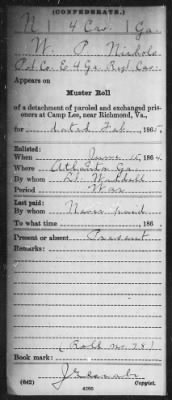 (CONFEDERATE.)
N | 4 Cav. | Ga.
W. P. Nichols
Pvt Co. E 4 Ga. Regt Cav.
Appears on
Muster Roll
of a detachment of paroled and exchanged prisoners at Camp Lee, near Richmond, Va.,
for dated Feb , 1865.
Enlisted:
When June 15, 1864.
Where Atlanta Ga.
By whom Lt. Mitchell
Period War
Last paid:
By whom Never paid
To what time , 186 .
Present or absent Present
Remarks:
(Roll No. 281)
Book mark:
(642)
Copyist.